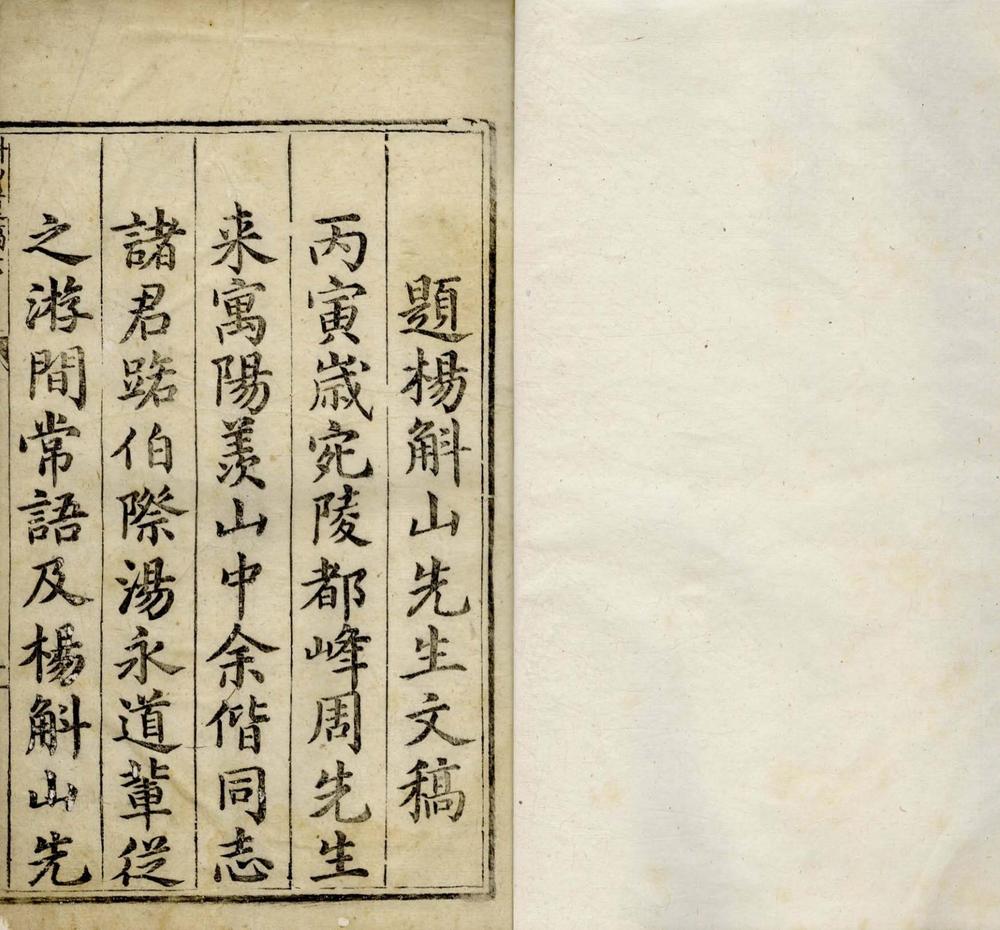 題楊斛山先生文稿
丙寅歳宛陵都峰周先生
来寓陽羨山中余偕同志
諸君踞伯際湯永道輩從
之游間常語及楊斛山先